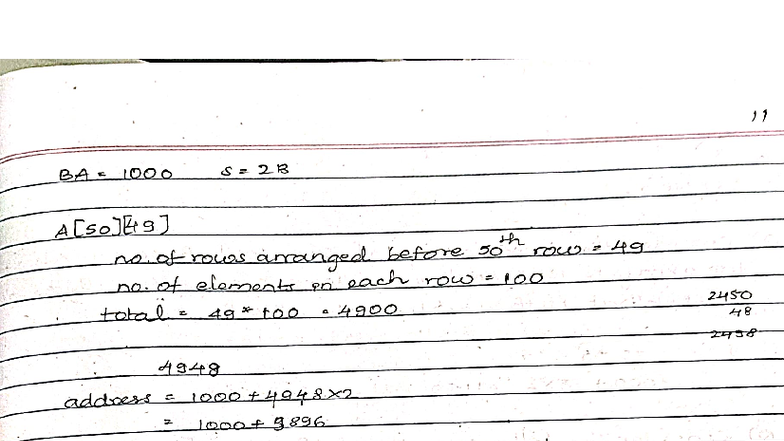 11
BA = 1000 S = 2B
A[50][49]
no. of rows arranged before 50th row = 49
no. of elements in each row = 100
total = 49 * 100 = 4900
2450
48
2498
4948
address = 1000 + 4948 × 2
= 1000 + 9896